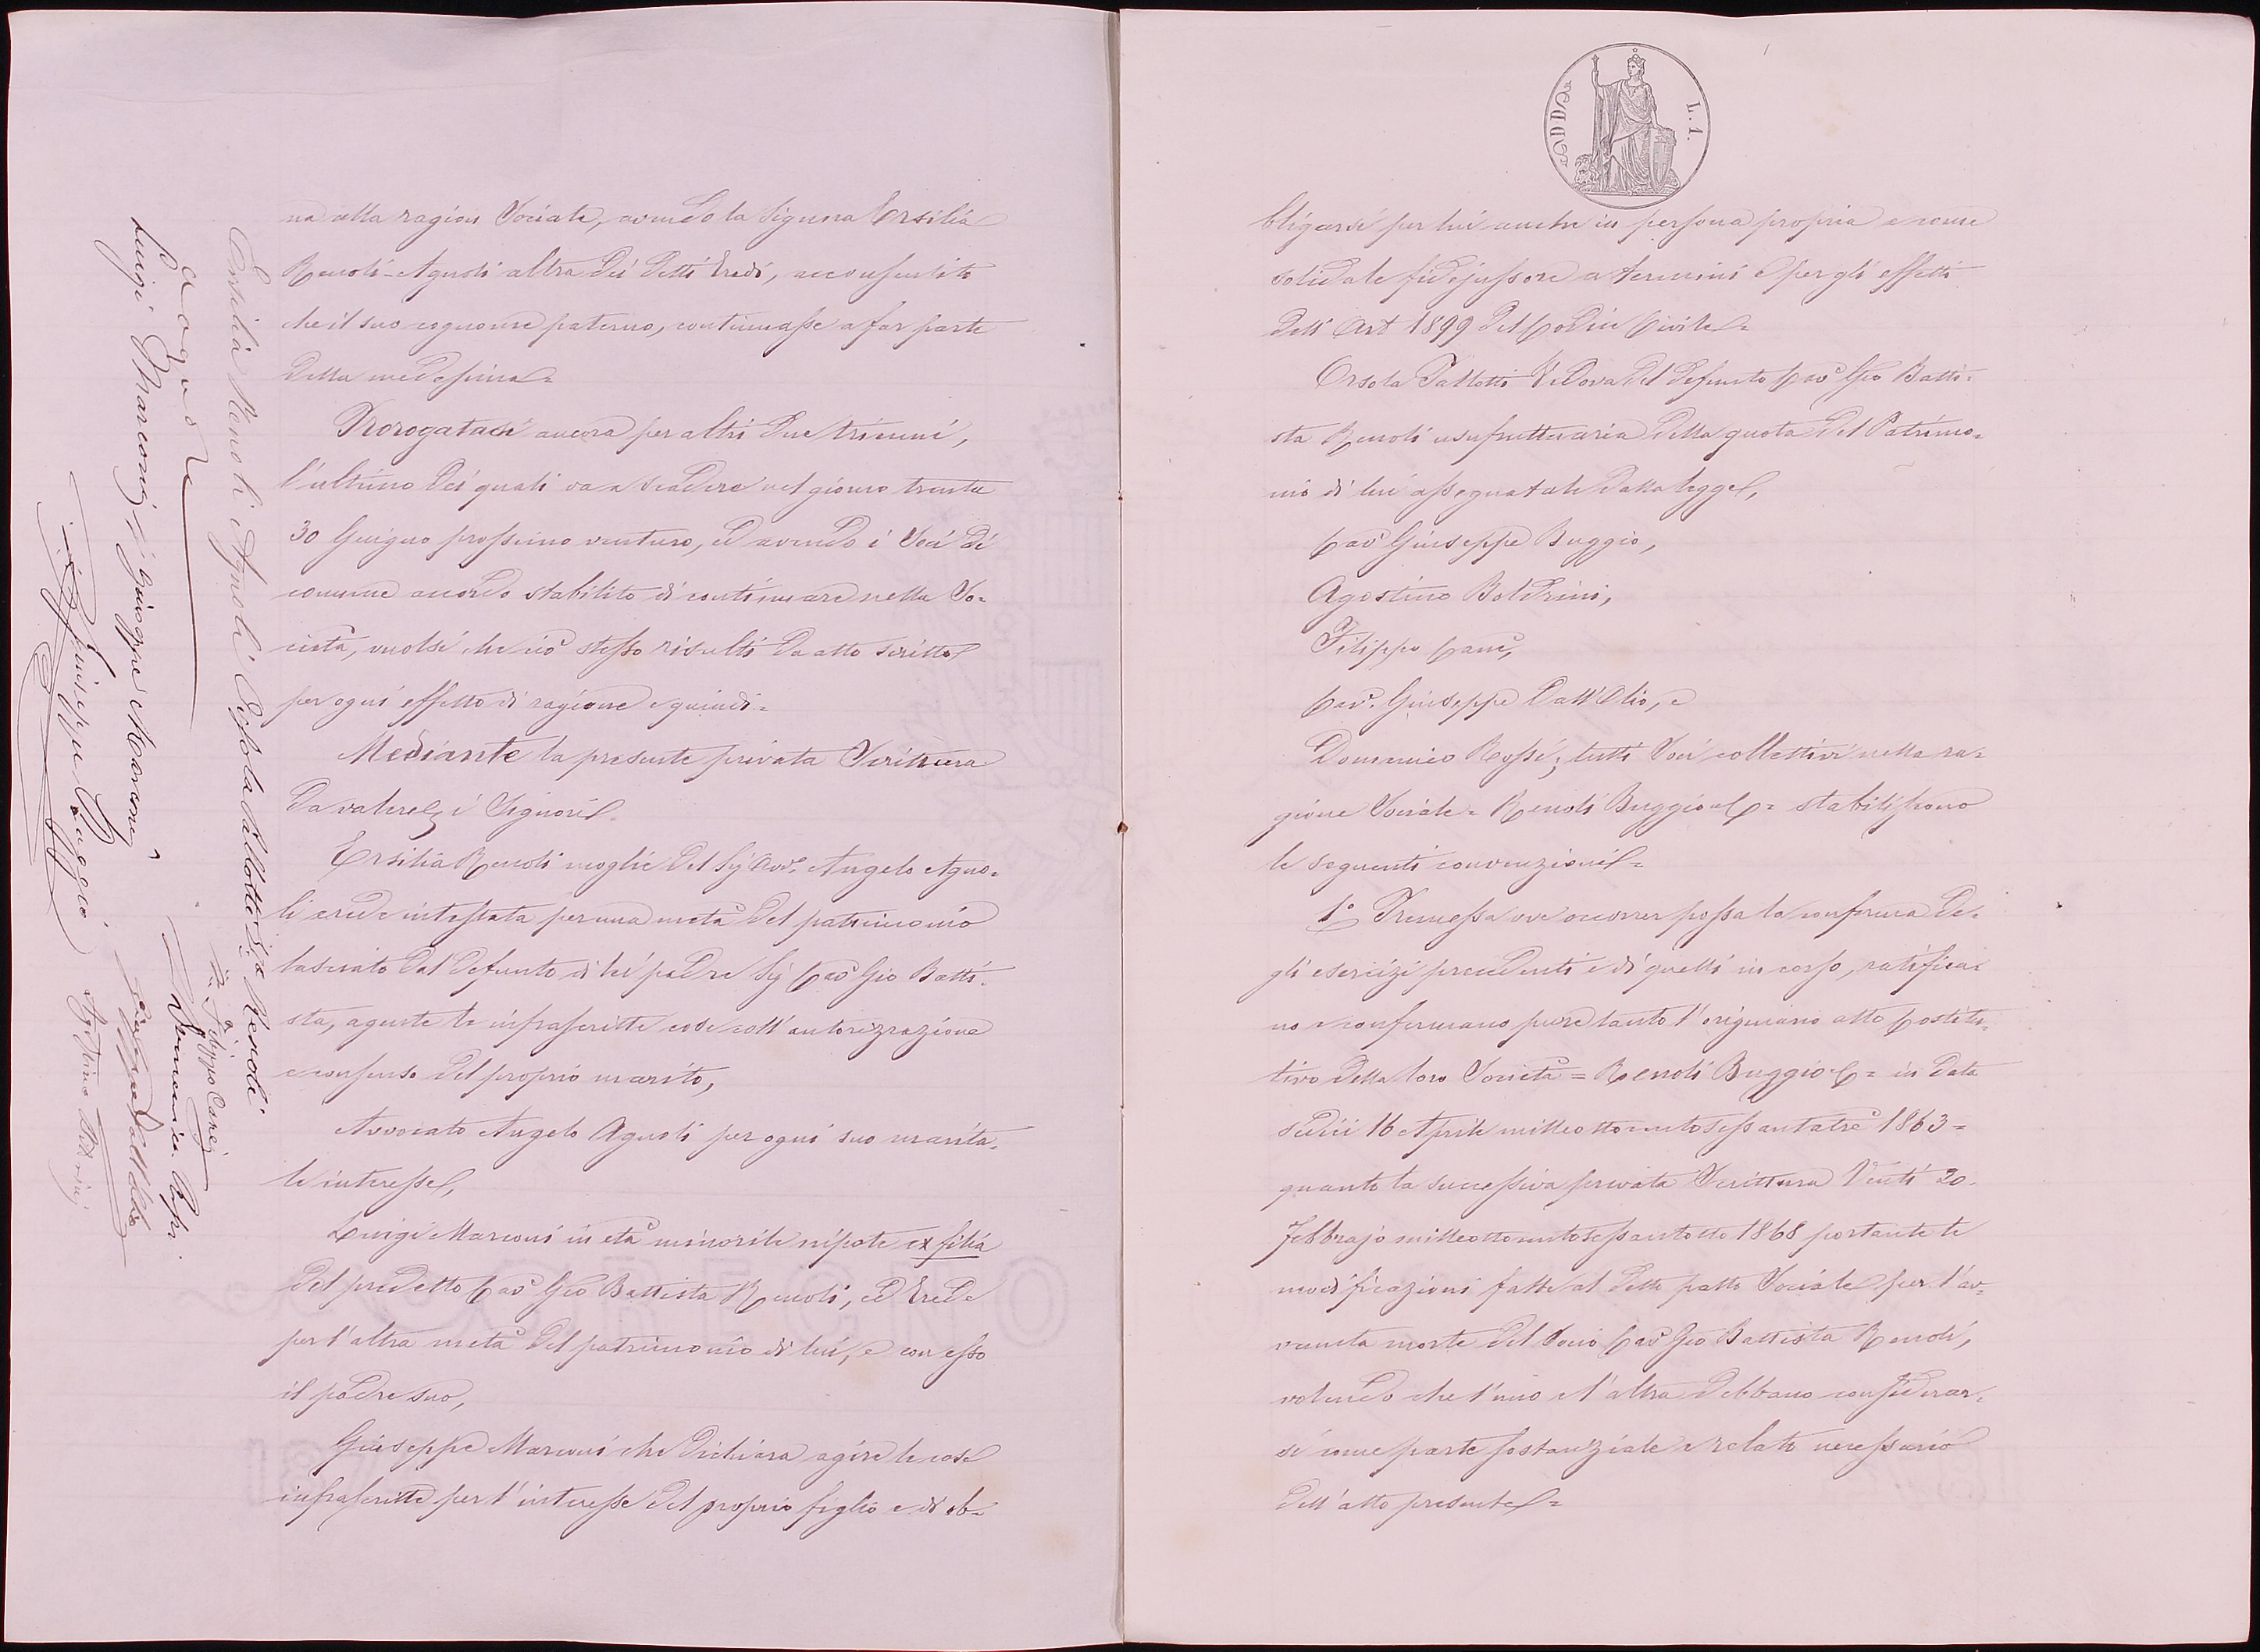 na alla ragion Sociale, avendo la Signora Ersilia
Renoli-Agnoli altra dei detti Eredi, acconsentito
che il suo cognome paterno, continuasse a far parte
della medesima=
Prorogatasi ancora per altri due trienni,
l'ultimo dei quali va a scadere nel giorno trenta
30 Giugno prossimo venturo, ed avendo i Soci di
comune accordo stabilito di continuare nella So=
cietà, vuolsi che ciò stesso risulti da atto scritto
per ogni effetto di ragione e quindi=
Mediante la presente privata Scrittura
da valere, i Signori
Ersilia Renoli moglie del Sig Avv. Angelo Agno=
li erede intestata per una metà del patrimonio
lasciato dal defunto di lei padre Sig Cav Gio Batti=
sta, agente le infrascritte cose coll'autorizzazione
e consenso del proprio marito,
Avvocato Angelo Agnoli per ogni suo marita=
le interesse,
Luigi Marconi in età minorile nipote ex filia
del predetto Cav Gio Battista Renoli, ed Erede
per l'altra metà del patrimonio di lui, e con esso
il padre suo,
Giuseppe Marconi che dichiara agire le cose
infrascritte per l'interesse del proprio figlio e di ob=
Ersilia Renoli Agnoli
Orsola Pallotti Va Renoli
Luigi Marconi
Giuseppe Marconi
Filippo Canè
Domenico Rossi
Giuseppe Buggio
Giuseppe Dall'Olio
Agostino Boldrini
L. 1.
bligarsi per lui anche in persona propria e come
solidale fidejussore a termini e per gli effetti
dell'Art 1899 del Codice Civile=
Orsola Pallotti Vedova del defunto Cav Gio Batti=
sta Renoli usufruttuaria della quota del Patrimo=
nio di lui assegnatale dalla legge,
Cav Giuseppe Buggio,
Agostino Boldrini,
Filippo Canè,
Cav. Giuseppe Dall'Olio, e
Domenico Rossi; tutti Soci collettivi nella ra=
gione Sociale= Renoli Buggio e C= stabiliscono
le seguenti convenzioni=
1º Premessa ove occorrer possa la conferma de=
gli esercizi precedenti e di quelli in corso, ratifica=
no e confermano pure tanto l'originario atto Costitu=
tivo della loro Società= Renoli Buggio e C= in data
sedici 16 Aprile milleottocentosessantatrè 1863=
quanto la successiva privata Scrittura Venti 20
Febbrajo milleottocentosessantotto 1868 portante le
modificazioni fatte al detto patto Sociale per l'av=
venuta morte del Socio Cav Gio Battista Renoli,
volendo che l'uno e l'altra debbano considerar=
si come parte sostanziale e relato necessario
dell'atto presente=